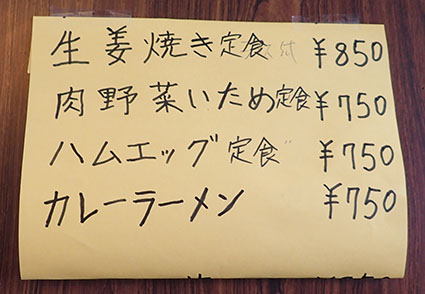 生姜焼き定食 ¥850
肉野菜いため定食 ¥750
ハムエッグ定食 ¥750
カレーラーメン ¥750